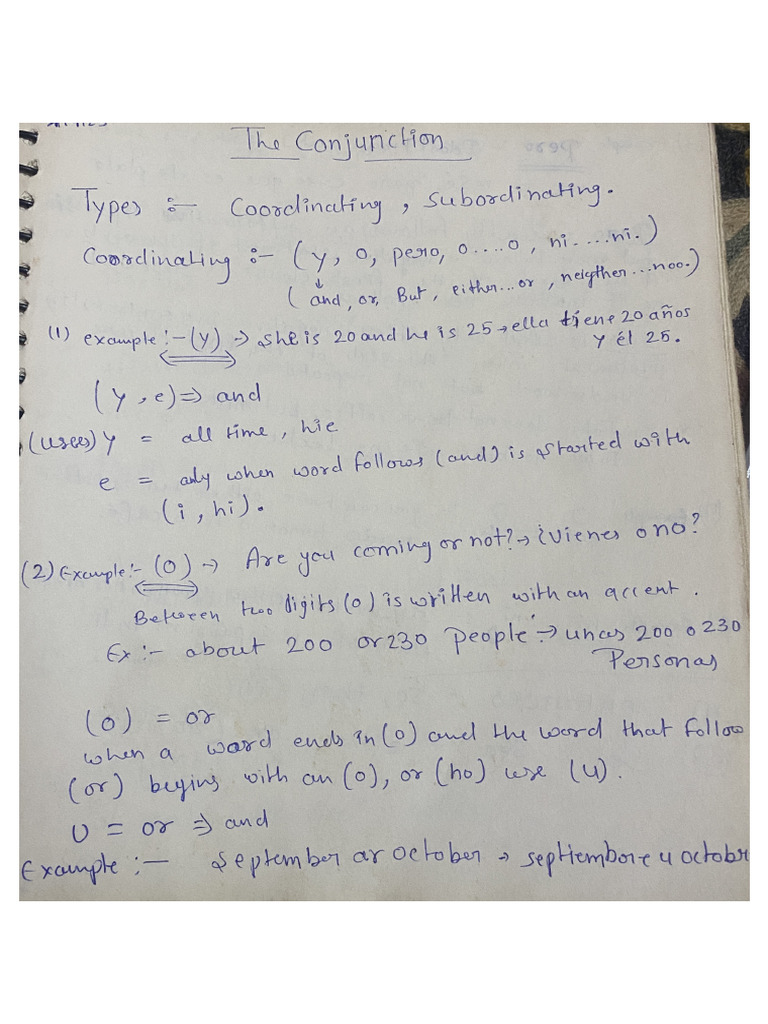 The Conjunction
Types :- Coordinating, Subordinating.
Coordinating :- (y, o, pero, o....o, ni....ni.)
(and, or, But, either...or, neigther...noo.)
(1) example :- (y) → she is 20 and he is 25 → ella tiene 20 años
y él 25.
(y, e) ⇒ and
(uses) y = all time, hie
e = only when word follows (and) is started with
(i, hi).
(2) Example:- (o) → Are you coming or not? → ¿Vienes o no?
Between two digits (o) is written with an accent.
Ex :- about 200 or 230 people → unas 200 o 230
Personas
(o) = or
when a word ends in (o) and the word that follow
(or) begins with an (o), or (ho) use (u).
U = or ⇒ and
Example :- September or October → septiembore u octobr